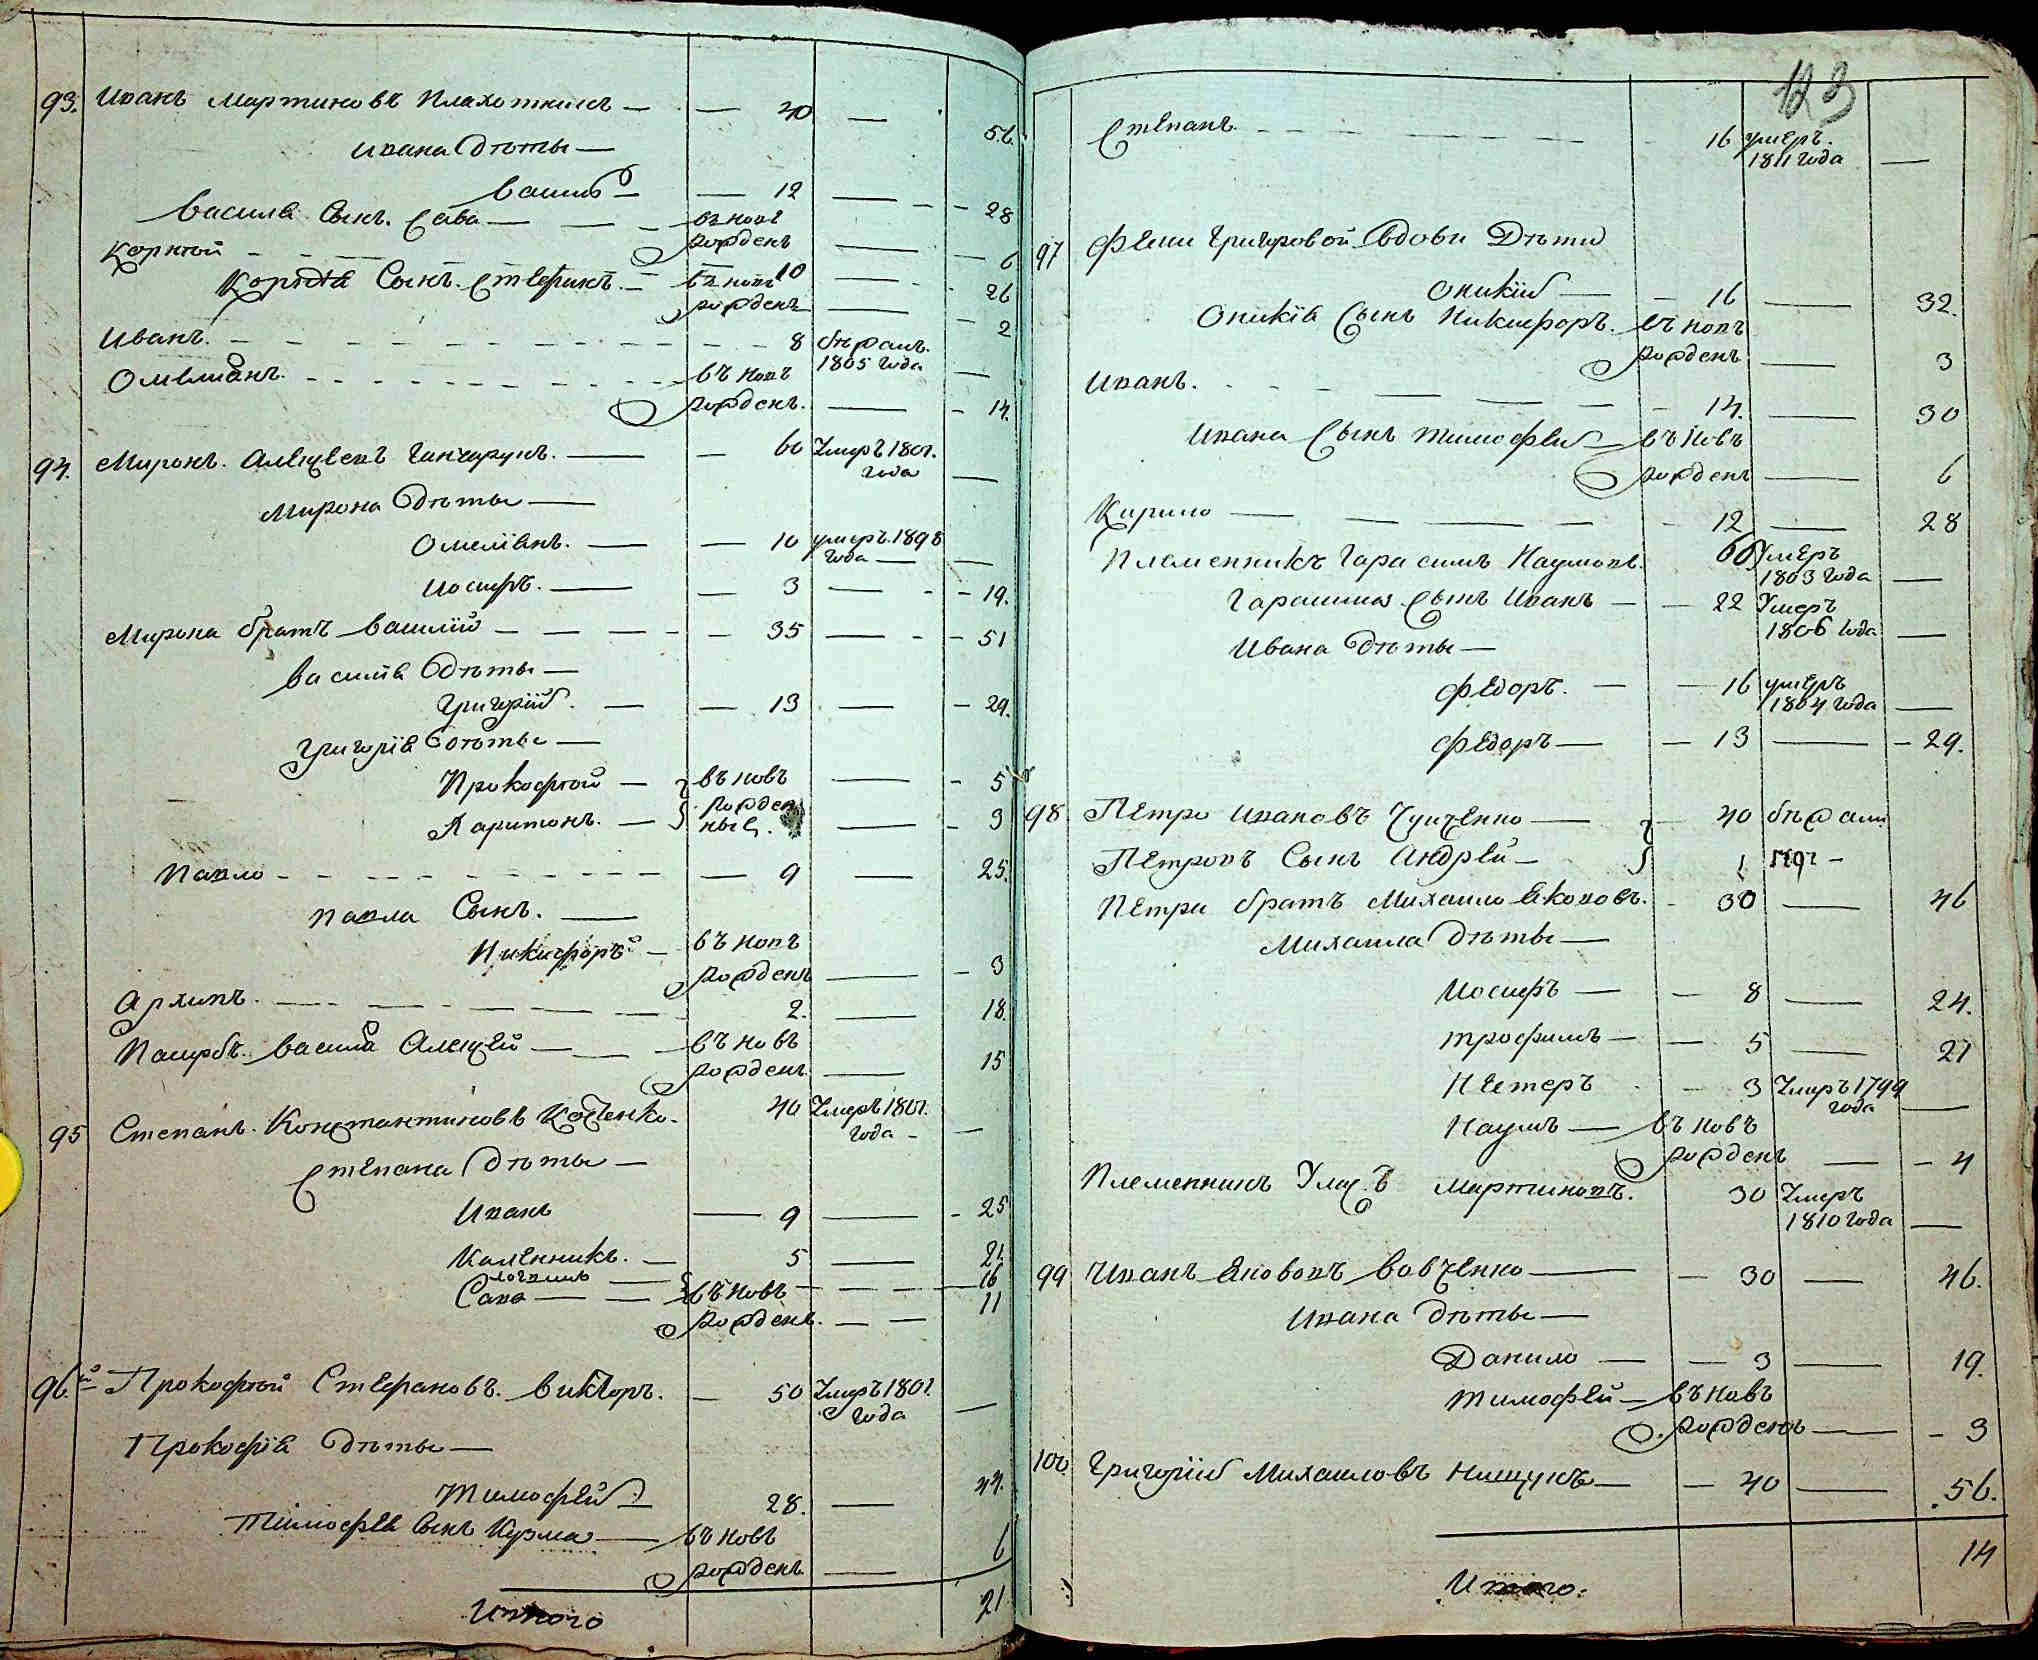 93. Иванъ Мартиновъ Плахотнюкъ — 40 —
56.
Ивана дѣты —
Василь — 12 — 28
Василя Сынъ Сава — въ новѣ
рожденъ — 6
Корнѣй — 10 — 26
Корнѣя Сынъ Стефанъ — въ новѣ
рожденъ — 2
Иванъ. — 8 бѣжалъ.
1805 года —
Омелианъ. въ новѣ
рожденъ. — 14.
94. Миронъ Алексеевъ — 60 Умеръ 1801.
года —
Мирона дѣты —
Омелианъ. — 10 умеръ. 1808
года —
Иосифъ. — 3 — 19.
Мирона братъ Василий — 35 — 51
Василя дѣты —
Григорій — 13 — 29.
Григорія дѣты —
Прокофій — въ новѣ — 5
рожден
Харитонъ. — ныя. — 3
Павло — 9 — 25.
Павла Сынъ. —
Никифоръ — въ новѣ
рожденъ — 3
Архипъ. — 2. — 18.
Пасербъ Василя Алексей — въ новѣ
рожденъ. — 15
95 Степанъ Константиновъ 40 Умеръ 1801.
года —
Степана дѣты —
Иванъ — 9 — 25
Каленникъ. — 5 — 21.
Логвинъ — 16
Сава — въ новѣ — 11
рожден. —
96.й Прокофій Стефановъ. Викторъ. — 50 Умеръ 1801.
года —
Прокофія дѣты —
Тимофей — 28. — 44.
Тимофея Сынъ Кузма — въ новѣ
рожденъ — 6
Итого 21
123
Степанъ. — 16 умеръ.
1811 года —
97 Григоровой вдовы Дѣти
Оникій — 16 — 32.
Оникія Сынъ Никифоръ. въ новѣ
рожденъ — 3
Иванъ. — 14. — 30
Ивана Сынъ Тимофей — въ новѣ
рожденъ — 6
Кирило — 12 — 28
Племенникъ Гарасимъ Наумовъ. 66 Умеръ
1803 года —
Гарасима Сынъ Иванъ — 22 Умеръ
1806 года —
Ивана дѣты —
Федоръ. — 16 умеръ
1804 года —
Федоръ — 13 — 29.
98. Петро Ивановъ — 40 бѣжали
Петровъ Сынъ Андрей — 1
Петра братъ Михаило Якововъ. — 30 — 46
Михаила дѣты —
Иосифъ — 8 — 24.
Трофимъ — 5 — 21
Нестеръ — 3 Умеръ 1799
года —
Наумъ — въ новѣ
рожденъ — 4
Племенникъ Мартиновъ. 30 Умеръ
1810 года —
99 Иванъ Якововъ Вовченко — 30 — 46.
Ивана дѣты —
Данило — 3 — 19.
Тимофей — въ новѣ
рожденъ — 3
100 Григорій Михаиловъ Нищукъ — 40 — 56.
14
Итого.